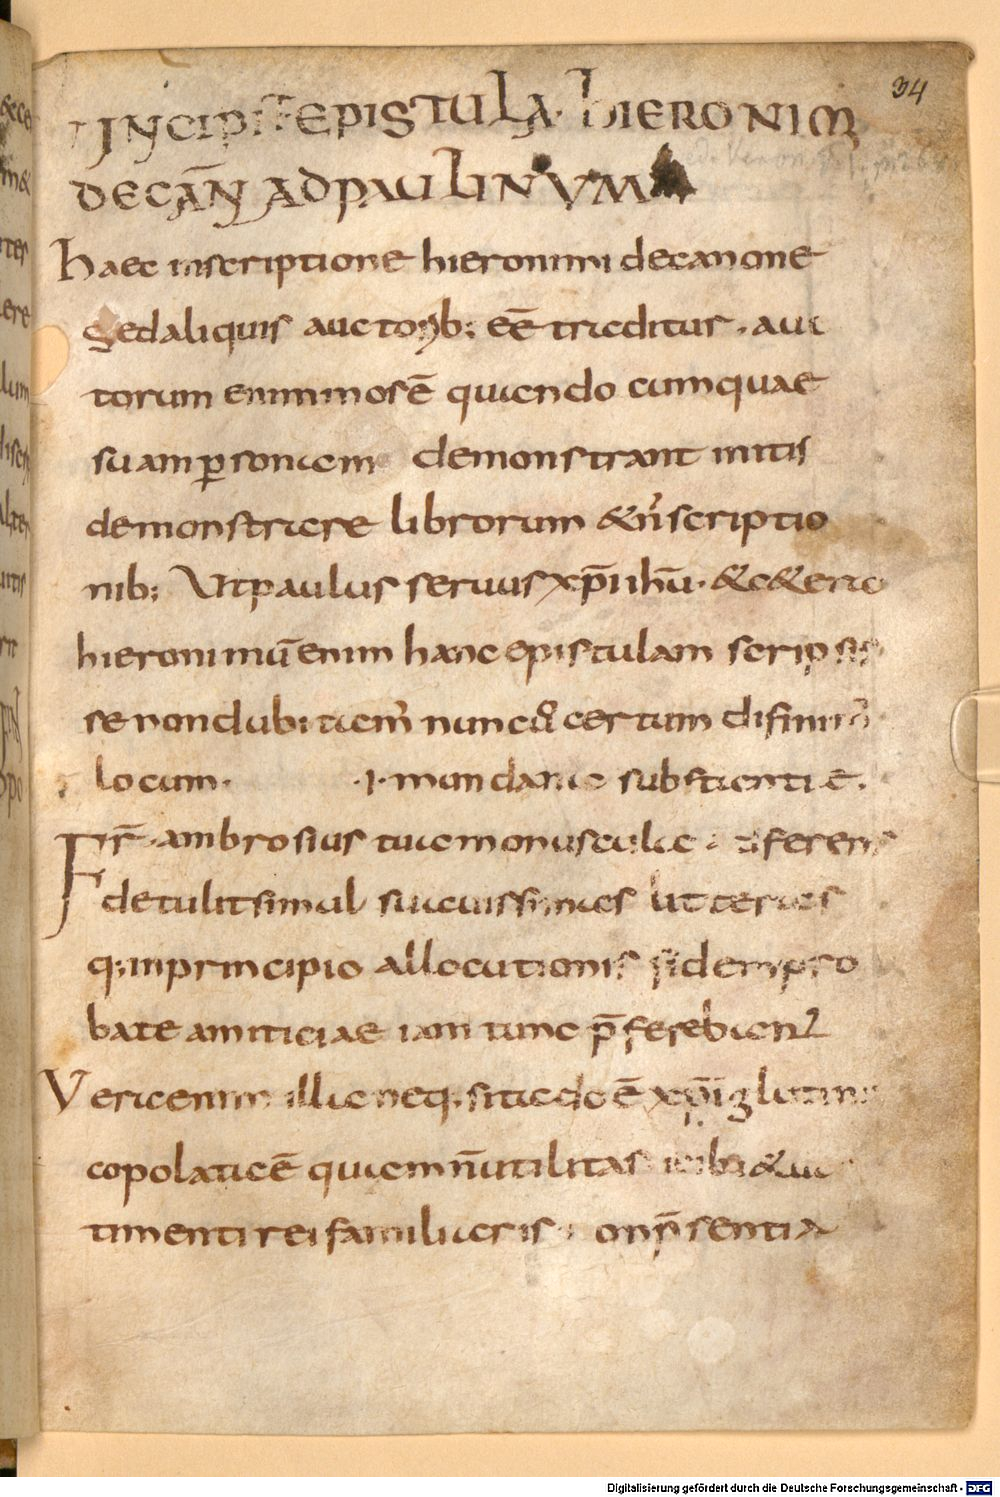 34
INCIPIT EPISTULA HIERONIM
DECAÑ AD PAULINVM
Haec inscriptione hieronimi decanone
sed aliquis auctorib; eē traditur . auc
torum enim mos ē quando cumquae
suam psonam demonstrant initis
demonstrare librorum & inscriptio
nib; Ut paulus seruus xp̄i ihū . & cetera
hieronimū enim hanc epistulam scripsis
se non dubitam̄ nunc qd certum difinir
locum . .I. mundanae substantiae.
Fr̄ ambrosius tua munuscula . perferens
detulit simul suauissimas litteras
q; in principio allocutionis fidem pro
bate amiticiae iam tunc p̄ferebant
Vera enim illa neq; situdo ē xp̄i glutin
copolata ē quam n̄ utilitas
timenti rei familiaris . on p̄sentia
Digitalisierung gefördert durch die Deutsche Forschungsgemeinschaft - DFG